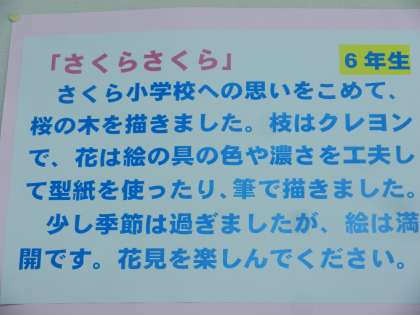 「さくらさくら」 6年生
さくら小学校への思いをこめて、
桜の木を描きました。枝はクレヨン
で、花は絵の具の色や濃さを工夫し
て型紙を使ったり、筆で描きました。
少し季節は過ぎましたが、絵は満
開です。花見を楽しんでください。